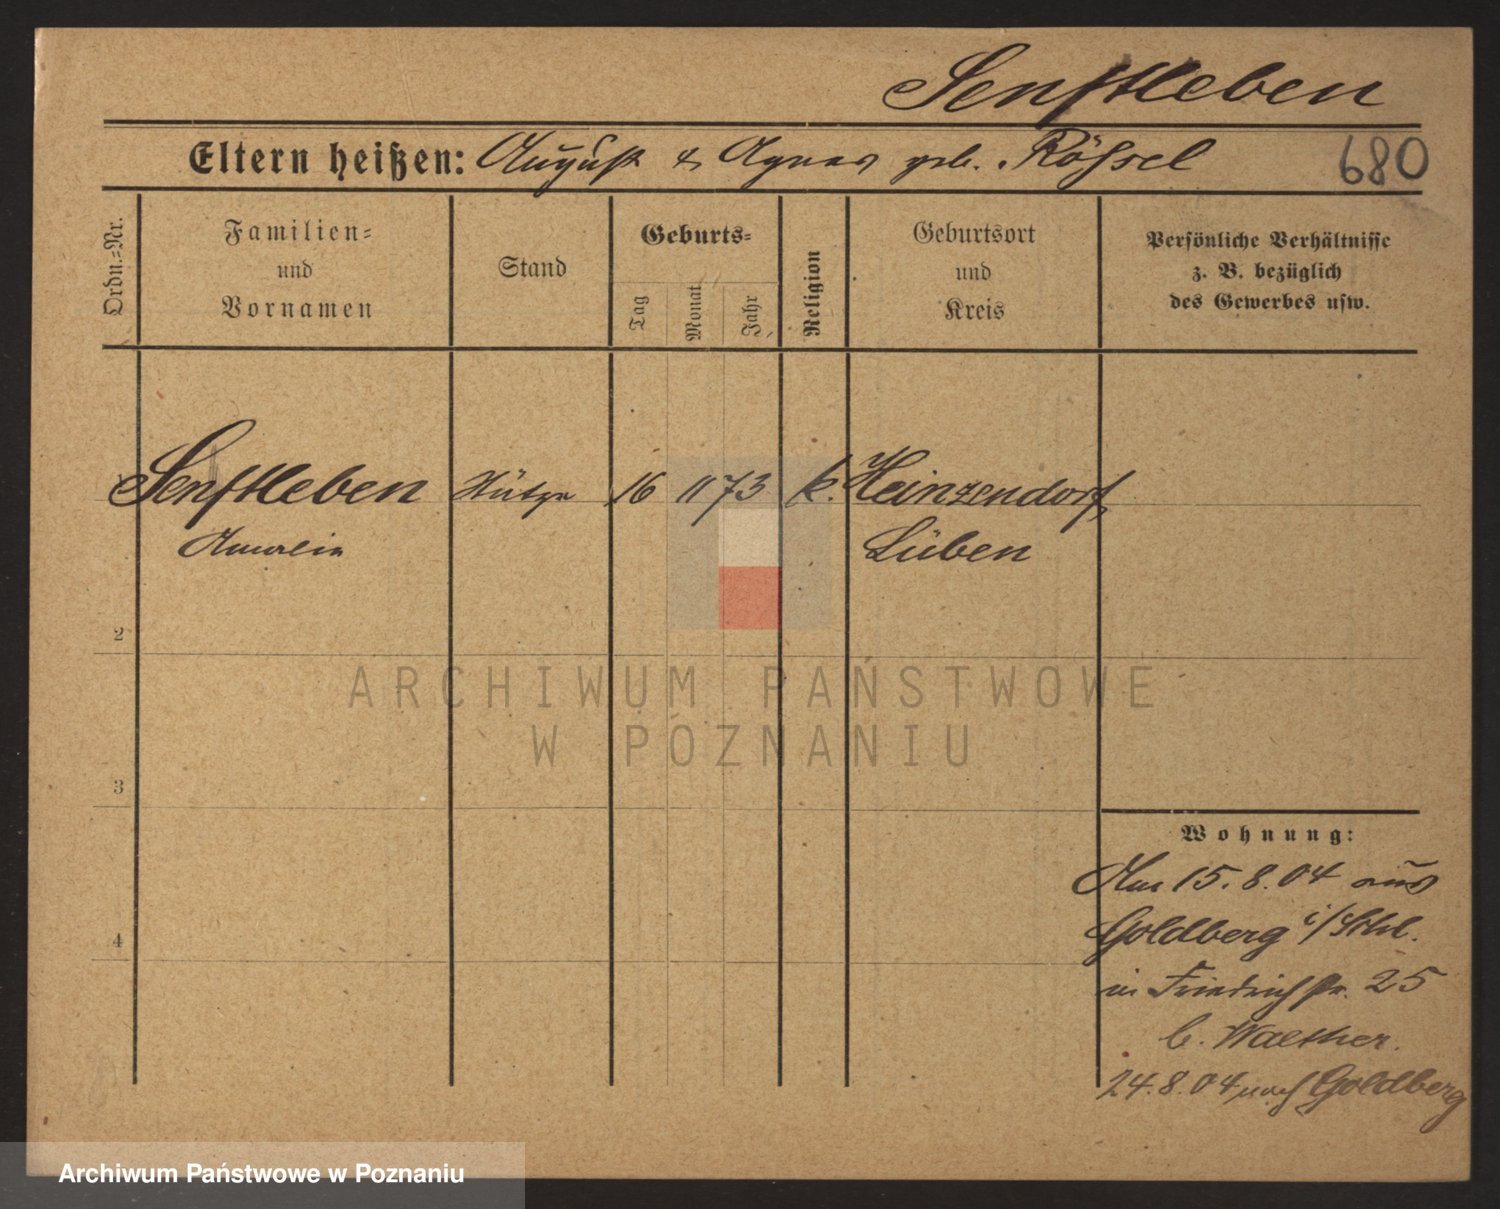 Senftleben
Eltern heißen: August & Agnes geb. Rößel
680
Ordn.-Nr.
Familien-
und
Vornamen
Stand
Geburts-
Tag
Monat
Jahr
Religion
Geburtsort
und
Kreis
Persönliche Verhältnisse
z. B. bezüglich
des Gewerbes usw.
1 Senftleben Stütze 16 11 73 k. Heinzendorf,
Amalie Lüben
2
3
4
Wohnung:
Am 15.8.04 aus
Goldberg i/Schl.
in Friedrichstr. 25
b. Walther.
24.8.04 nach Goldberg
ARCHIWUM PAŃSTWOWE
W POZNANIU
Archiwum Państwowe w Poznaniu